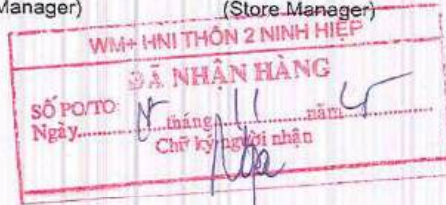 Manager) (Store Manager)
WM+ HNI THÔN 2 NINH HIỆP
ĐÃ NHẬN HÀNG
SỐ PO/TO:
Ngày........ tháng 11 năm
Chữ ký người nhận